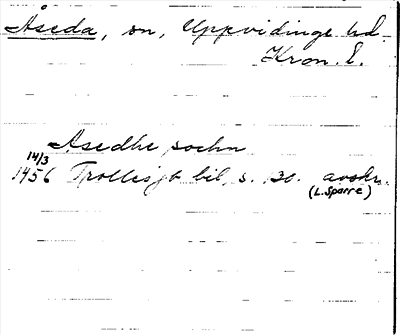 Åseda, sn, Uppvidinge hd.
Kron. l.
Asedhe sochn
14/3
1456 Trolles jb bil, s. 30. avskr.
(L. Sparre)